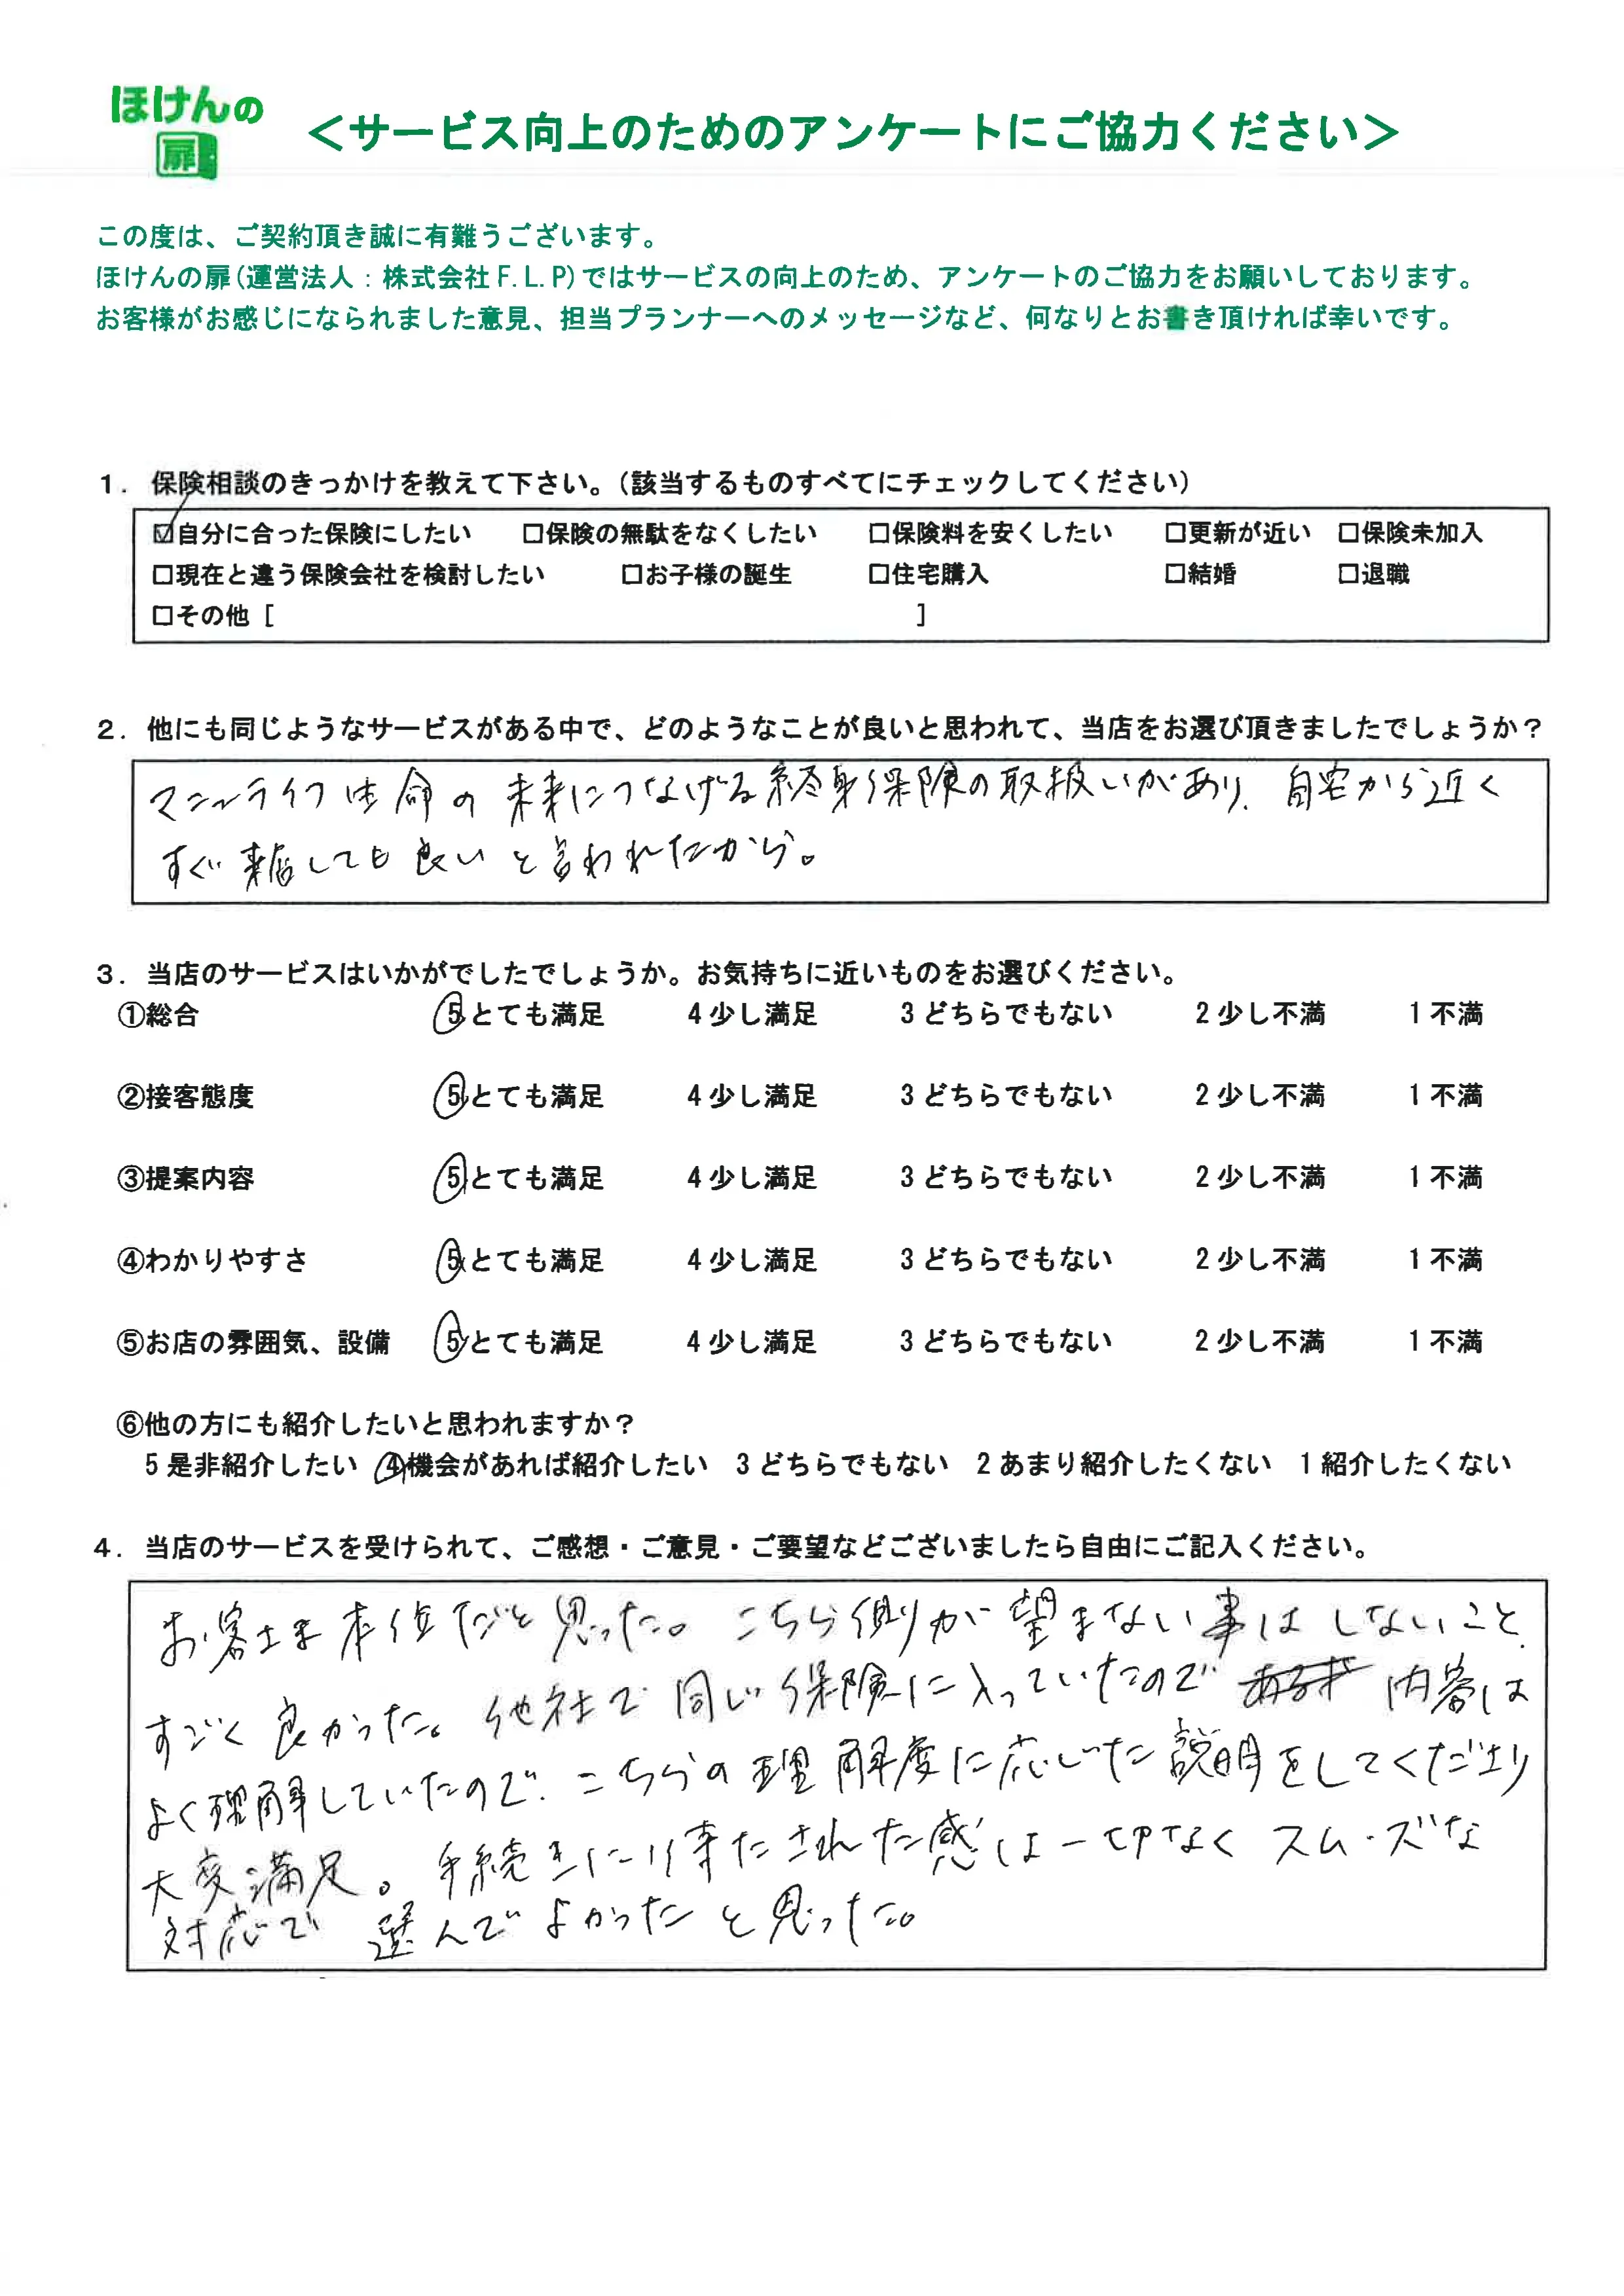 ほけんの
扉
＜サービス向上のためのアンケートにご協力ください＞
この度は、ご契約頂き誠に有難うございます。
ほけんの扉(運営法人：株式会社F.L.P)ではサービスの向上のため、アンケートのご協力をお願いしております。
お客様がお感じになられました意見、担当プランナーへのメッセージなど、何なりとお書き頂ければ幸いです。
１．保険相談のきっかけを教えて下さい。（該当するものすべてにチェックしてください）
☑自分に合った保険にしたい　□保険の無駄をなくしたい　□保険料を安くしたい　□更新が近い　□保険未加入
□現在と違う保険会社を検討したい　□お子様の誕生　□住宅購入　□結婚　□退職
□その他［　　　　］
２．他にも同じようなサービスがある中で、どのようなことが良いと思われて、当店をお選び頂きましたでしょうか？
マニュライフ生命の未来につなげる終身保険の取扱いがあり、自宅から近く
すぐ来店しても良いと言われたから。
３．当店のサービスはいかがでしたでしょうか。お気持ちに近いものをお選びください。
①総合　5とても満足　4少し満足　3どちらでもない　2少し不満　1不満
②接客態度　5とても満足　4少し満足　3どちらでもない　2少し不満　1不満
③提案内容　5とても満足　4少し満足　3どちらでもない　2少し不満　1不満
④わかりやすさ　5とても満足　4少し満足　3どちらでもない　2少し不満　1不満
⑤お店の雰囲気、設備　5とても満足　4少し満足　3どちらでもない　2少し不満　1不満
⑥他の方にも紹介したいと思われますか？
5是非紹介したい　4機会があれば紹介したい　3どちらでもない　2あまり紹介したくない　1紹介したくない
４．当店のサービスを受けられて、ご感想・ご意見・ご要望などございましたら自由にご記入ください。
お客さま本位だと思った。こちら側が望まない事はしないこと、
すごく良かった。他社で同じ保険に入っていたので 内容は
よく理解していたので、こちらの理解度に応じた説明をしてくださり
大変満足。手続きに待たされた感は一切なくスムーズな
対応で 選んでよかったと思った。